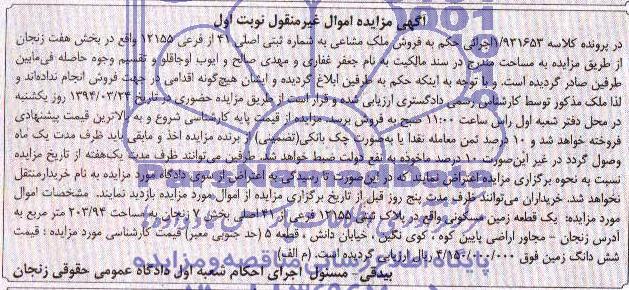 آگهی مزایده اموال غیرمنقول نوبت اول
در پرونده کلاسه 1/931653اجرائی حکم به فروش ملک مشاعی به شماره ثبتی اصلی 41 از فرعی 12155 واقع در بخش هفت زنجان
از طریق مزایده به مساحت مندرج در سند مالکیت به نام جعفر غفاری و مهدی صالح و ایوب اوجاقلو و تقسیم وجوه حاصله فی‌مابین
طرفین صادر گردیده است. و با توجه به اینکه حکم به طرفین ابلاغ گردیده و ایشان هیچ‌گونه اقدامی در جهت فروش انجام نداده‌اند و
لذا ملک مذکور توسط کارشناس رسمی دادگستری ارزیابی شده و قرار است از طریق مزایده حضوری در تاریخ 1394/03/24 روز یکشنبه
در محل دفتر شعبه اول راس ساعت 11:00 صبح به فروش برسد. مزایده از قیمت پایه کارشناسی شروع و به بالاترین قیمت پیشنهادی
فروخته خواهد شد و 10 درصد ثمن معامله نقدا یا به‌صورت چک بانکی(تضمینی) از برنده مزایده اخذ و مابقی باید ظرف مدت یک ماه
وصول گردد در غیر این‌صورت 10 درصد ماخوذه به نفع دولت ضبط خواهد شد. طرفین می‌توانند ظرف مدت یک‌هفته از تاریخ مزایده
نسبت به نحوه برگزاری مزایده اعتراض نمایند که در این‌صورت تا رسیدگی به اعتراض از سوی دادگاه مورد مزایده به نام خریدارمنتقل
نخواهد شد. خریداران می‌توانند ظرف مدت پنج روز قبل از تاریخ برگزاری مزایده از اموال مورد مزایده بازدید نمایند. مشخصات اموال
مورد مزایده: یک قطعه زمین مسکونی واقع در پلاک ثبتی 12155 فرعی از 41 اصلی بخش 7 زنجان به مساحت 203/94 متر مربع به
آدرس زنجان - مجاور اراضی پایین کوه ، کوی نگین ، خیابان دانش ، قطعه 5 (حد جنوبی معبر) قیمت کارشناسی مورد مزایده : قیمت
شش دانگ زمین فوق 4/150/000/000 ریال ارزیابی گردیده است. (م الف)
بیدقی - مسئول اجرای احکام شعبه اول دادگاه عمومی حقوقی زنجان
پایگاه اطلاع رسانی مناقصه و مزایده